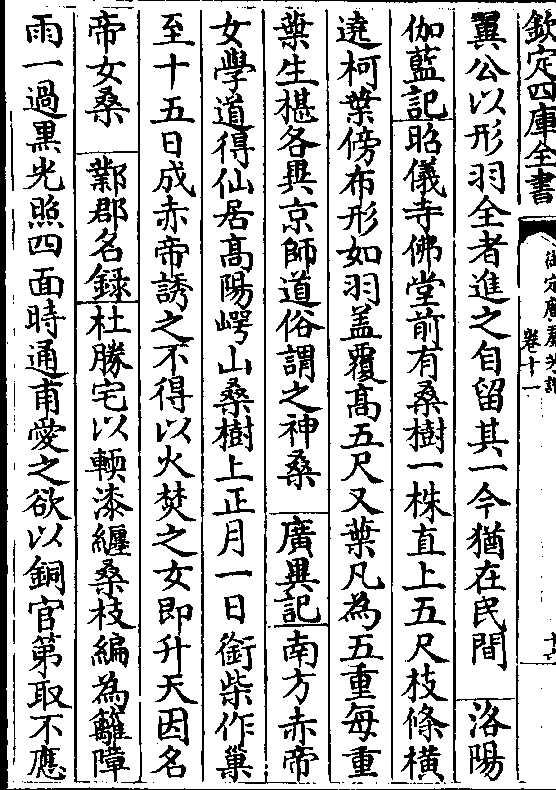 欽定四庫全書
御定廣羣芳譜
卷十一
翼公以形羽全者進之自留其一今猶在民間　洛陽
伽藍記昭儀寺佛堂前有桑樹一株直上五尺枝條橫
遶柯葉傍布形如羽盖覆髙五尺又葉凡為五重每重
葉生椹各異京師道俗謂之神桑　廣異記南方赤帝
女學道得仙居髙陽崿山桑樹上正月一日銜柴作巢
至十五日成赤帝誘之不得以火焚之女即升天因名
帝女桑　鄴郡名録杜勝宅以輭漆纏桑枝編為籬障
雨一過黒光照四面時通甫愛之欲以銅官第取不應